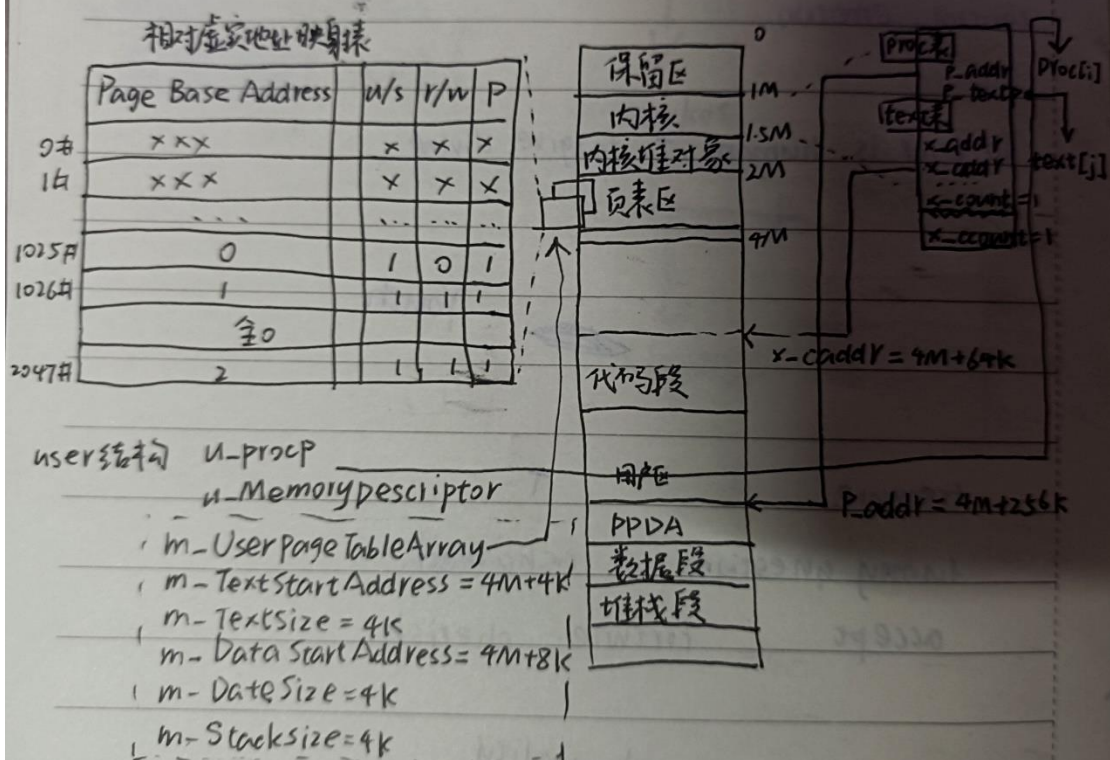 相对虚实地址映射表
Page Base Address u/s r/w P
0# xxx x x x
1# xxx x x x
... ... ... ...
1025# 0 1 0 1
1026# 1 1 1 1
全0
2047# 2 1 1 1
user结构 u_procp
u_MemoryDescriptor
m_UserPageTableArray
m_TextStartAddress = 4M+4K
m_TextSize = 4K
m_Data Start Address = 4M+8K
m_DateSize=4K
m_Stacksize=4K
0
保留区
1M
内核
1.5M
内核堆对象
2M
页表区
4M
代码段
用户区
PPDA
数据段
堆栈段
proc表
p_addr
p_textp
proc[i]
text表
x_addr
x_caddr
text[j]
x_count=1
x_ccount=1
x_caddr = 4M+64K
P_addr = 4M+256K